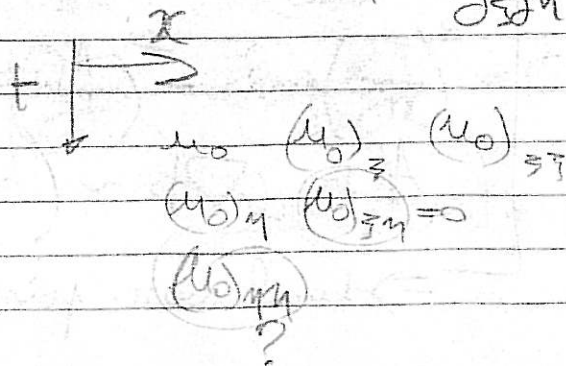 ∂ξ∂η
x
t
u₀ (u₀)_ξ (u₀)_ξξ
(u₀)_η (u₀)_ξη = 0
(u₀)_ηη
?